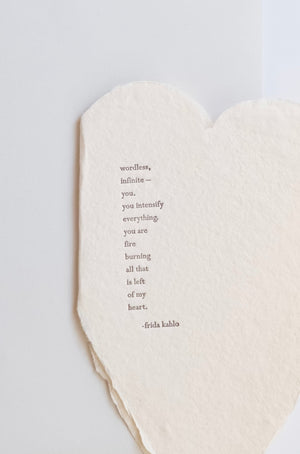 wordless,
infinite—
you.
you intensify
everything.
you are
fire
burning
all that
is left
of my
heart.
-frida kahlo